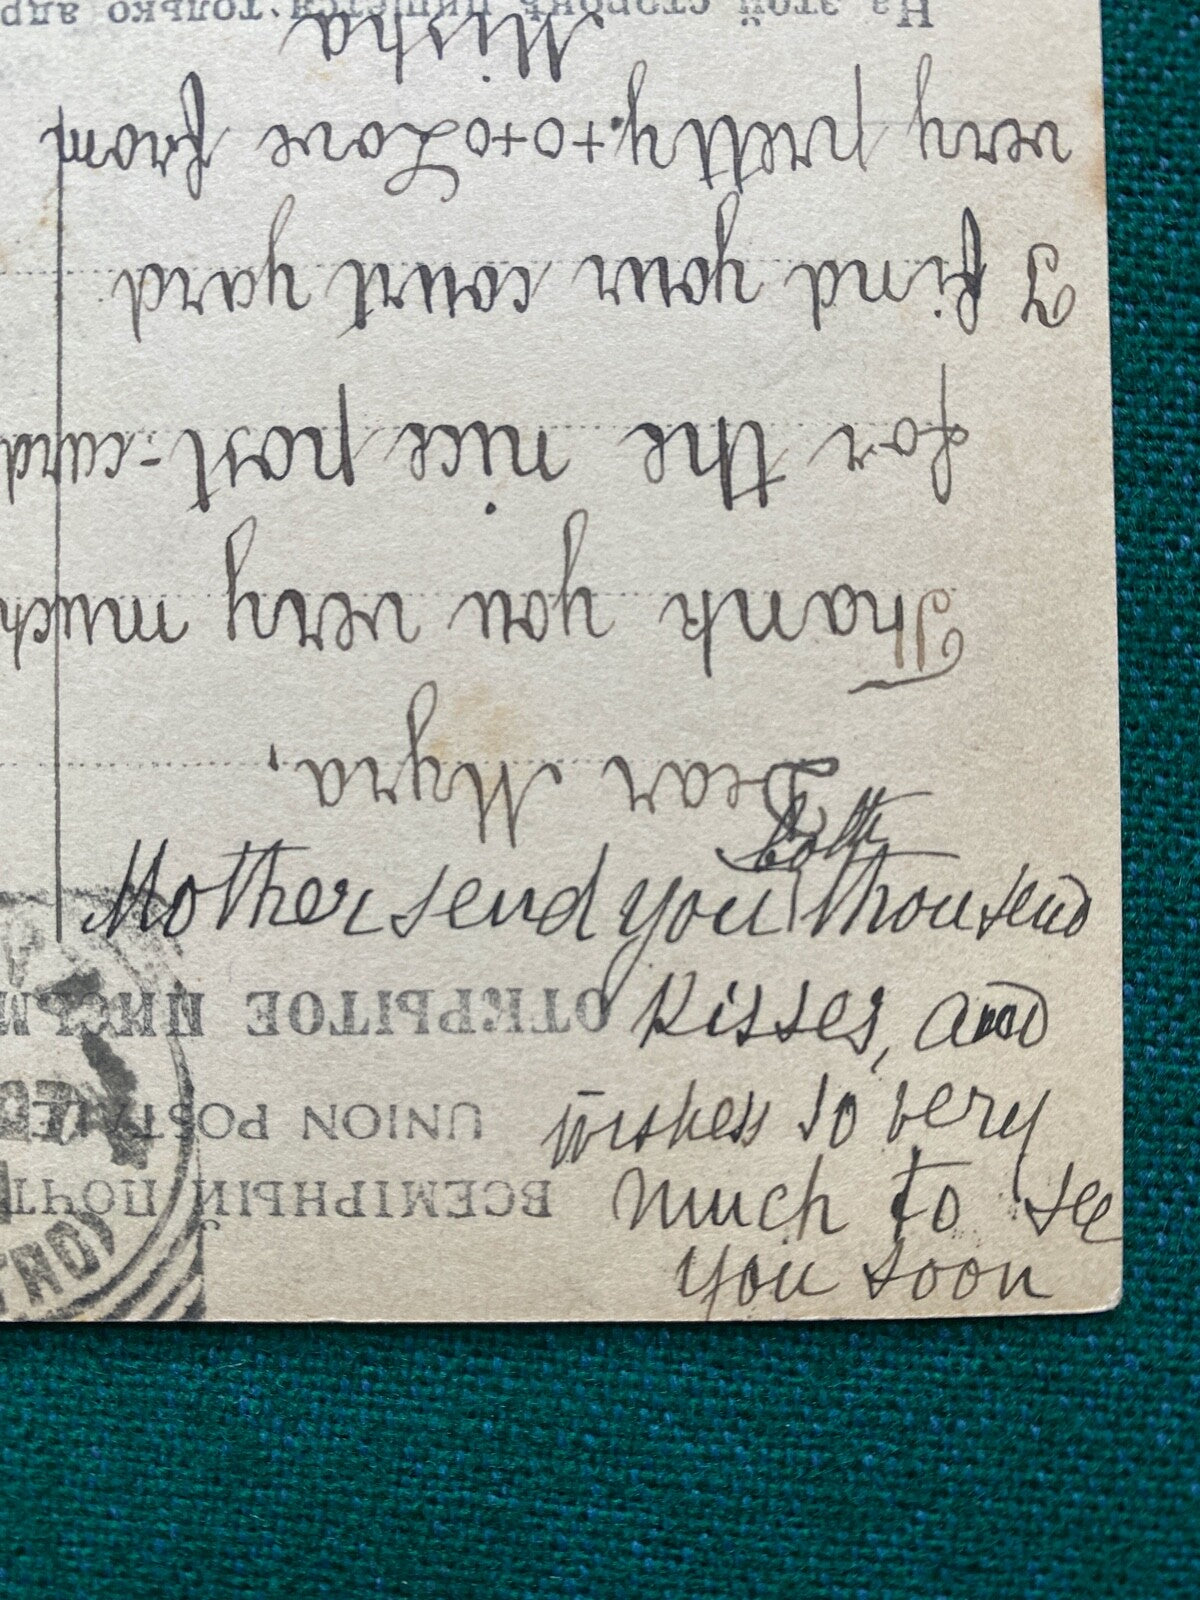 Mother send you both thousend
kisses, and
wishes so very
much to see
you soon
Dear Myra,
Thank you very much
for the nice post-card
I find your court yard
very pretty. +o+o Love from
Misha
ВСЕМІРНЫЙ ПОЧТ
UNION POSTALE
ОТКРЫТОЕ ПИСЬМ
На этой сторонѣ пишется только адр